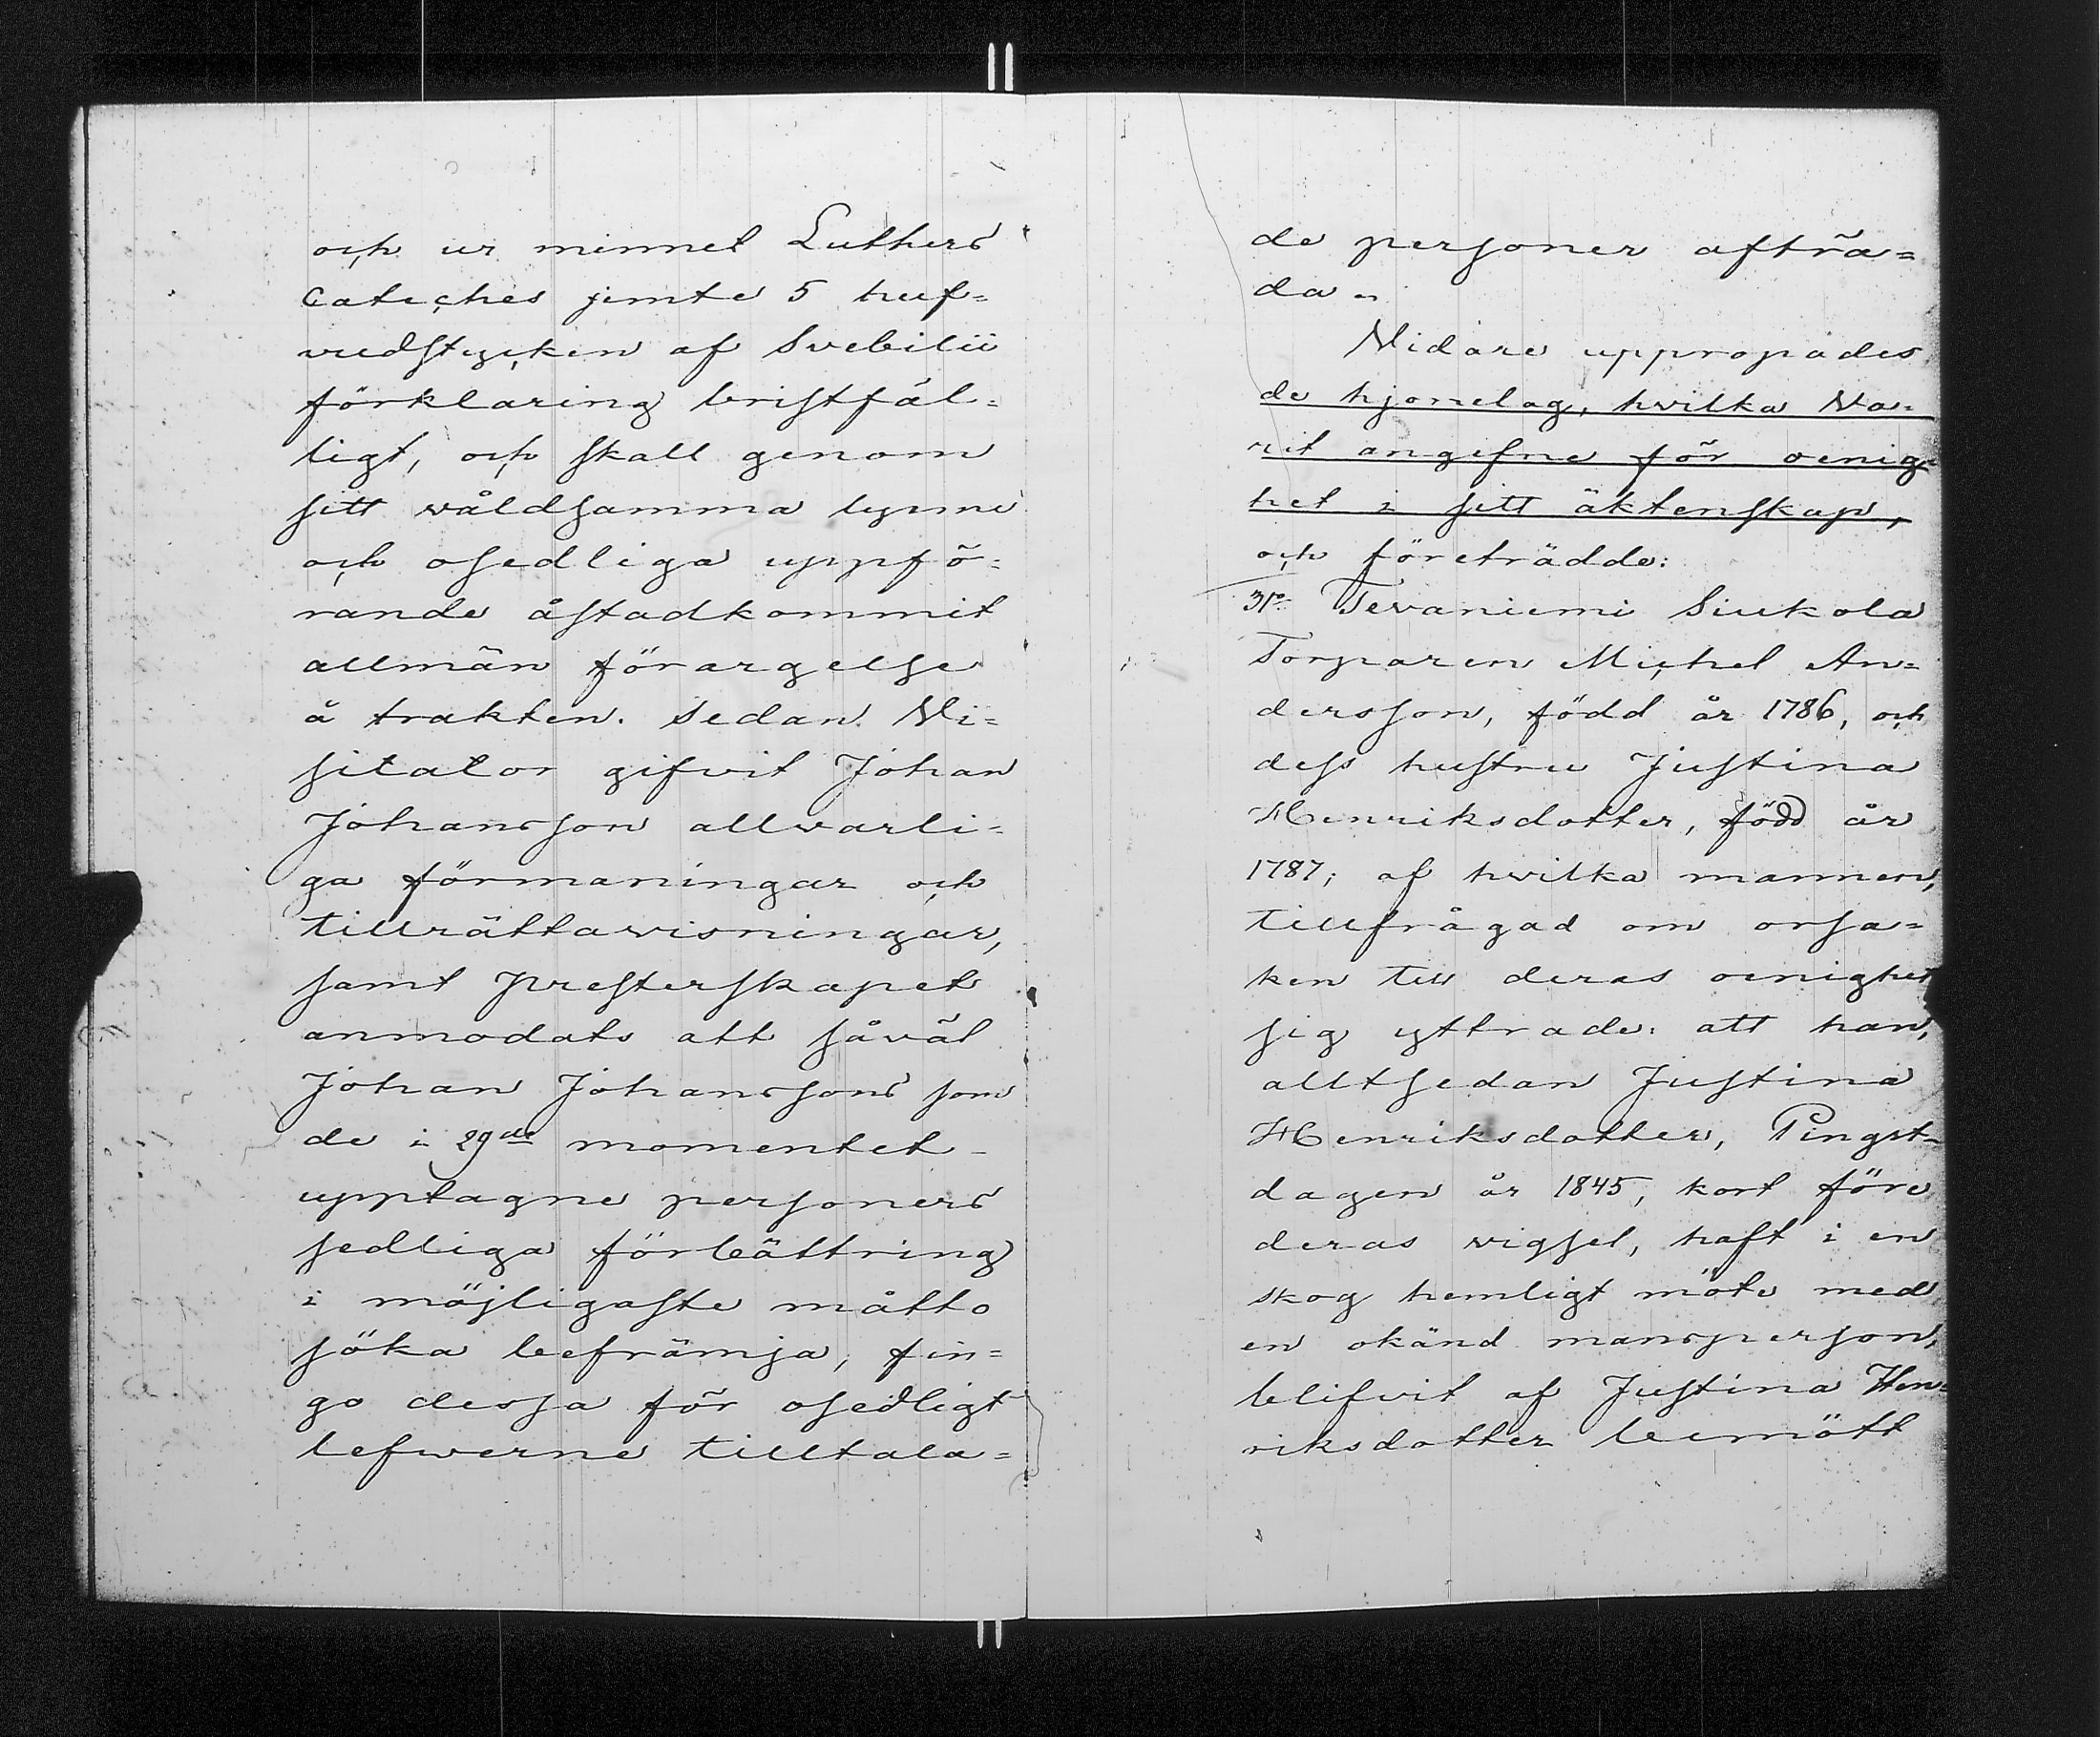 och ur minnet Luthers
Cateches jemte 5 huf=
vudstycken af Svebilii
förklaring bristfäl=
ligt, och skall genom
sitt våldsamma lynne
och osedliga uppfö=
rande åstadkommit
allmän förargelse
å trakten. Sedan Vi=
sitator gifvit Johan
Johansson allvarli=
ga förmaningar och
tillrättavisningar,
samt presterskapet
anmodats att såväl
Johan Johanssons som
de i 29de momentet
upptagne personers
sedliga förbättring
i möjligaste måtto
söka befrämja, fin=
go dessa för osedligt
lefwerne tilltala=
de personer afträ=
da.
Vidare uppropades
de hjonelag, hvilka va=
rit angifne för oenig=
het i sitt äktenskap,
och företrädde:
31o Tevaniemi Siukola
Torparen Michel An=
dersson, född år 1786, och
dess hustru Justina
Henriksdotter, född år
1787; af hvilka mannen,
tillfrågad om orsa=
ken till deras oenighet
sig yttrade: att han,
alltsedan Justina
Henriksdotter, Pingst=
dagen år 1845, kort före
deras vigsel, haft i en
skog hemligt möte med
en okänd mansperson,
blifvit af Justina Hen=
riksdotter bemött